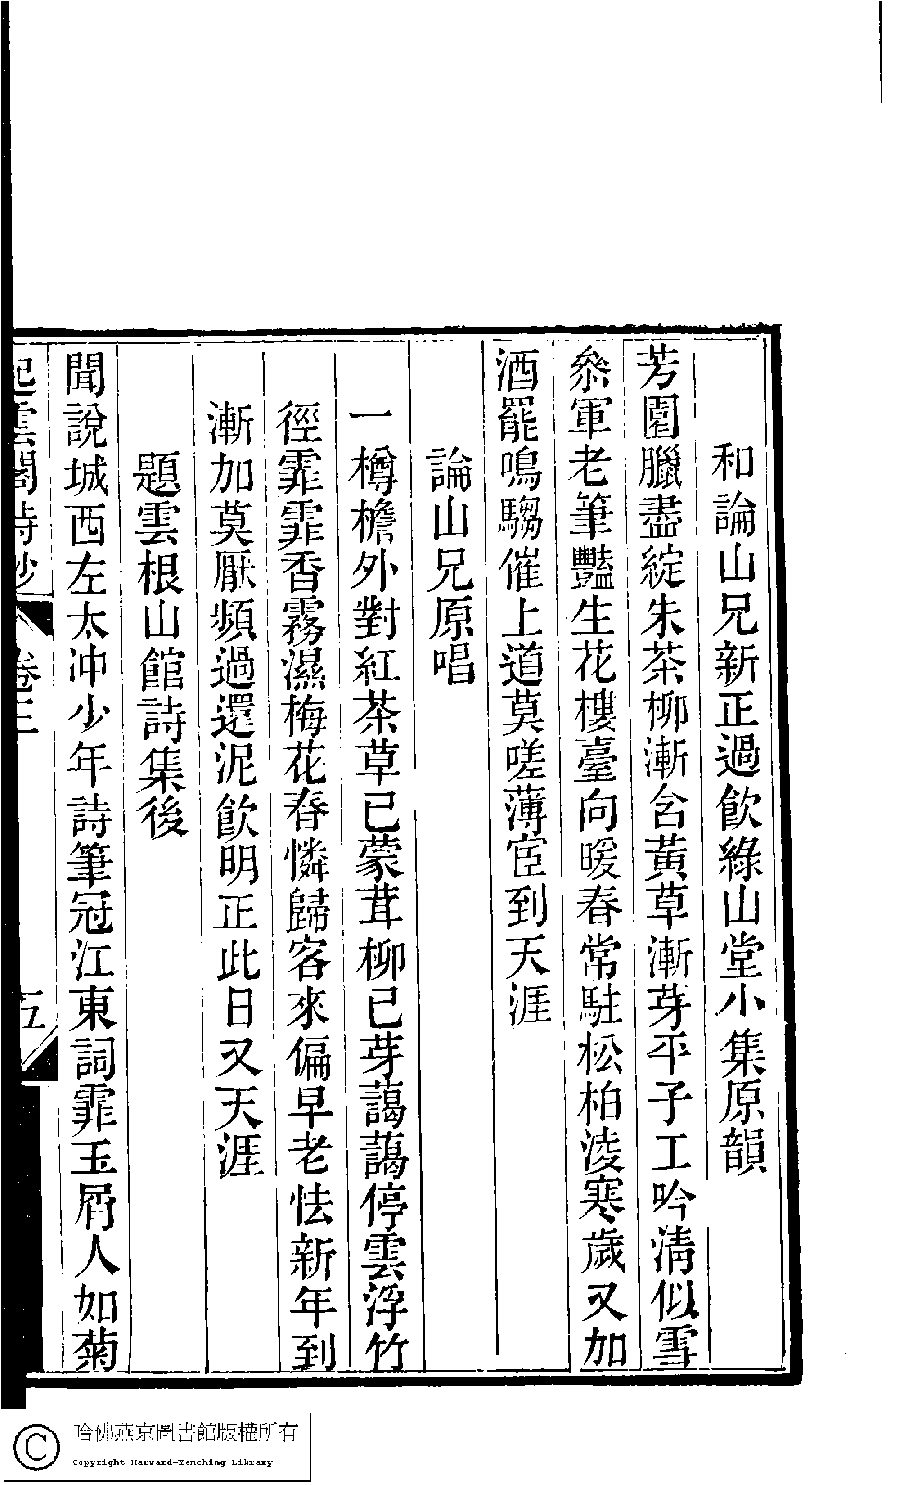 和論山兄新正過飲綠山堂小集原韻
芳園臘盡綻朱茶柳漸含黃草漸芽平子工吟清似雪
叅軍老筆豔生花樓臺向暖春常駐松柏淩寒歲又加
酒罷鳴騶催上道莫嗟薄宦到天涯
論山兄原唱
一樽檐外對紅茶草已蒙茸柳已芽藹藹停雲浮竹
徑霏霏香霧濕梅花春憐歸客來偏早老怯新年到
漸加莫厭頻過還泥飲明正此日又天涯
題雲根山館詩集後
聞說城西左太冲少年詩筆冠江東詞霏玉屑人如菊
起雲閣詩鈔 卷三 五
哈佛燕京圖書館版權所有
Copyright Harvard-Yenching Library